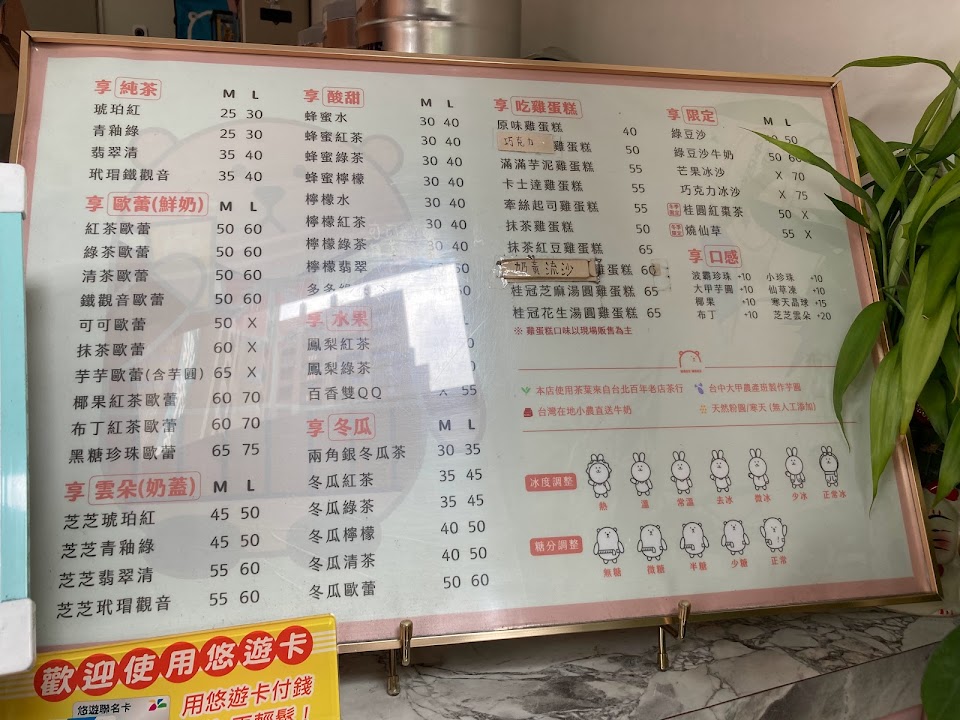 享 純茶 M L
琥珀紅 25 30
青釉綠 25 30
翡翠清 35 40
玳瑁鐵觀音 35 40
享 歐蕾(鮮奶) M L
紅茶歐蕾 50 60
綠茶歐蕾 50 60
清茶歐蕾 50 60
鐵觀音歐蕾 50 60
可可歐蕾 50 X
抹茶歐蕾 60 X
芋芋歐蕾(含芋圓) 65 X
椰果紅茶歐蕾 60 70
布丁紅茶歐蕾 60 70
黑糖珍珠歐蕾 65 75
享 雲朵(奶蓋) M L
芝芝琥珀紅 45 50
芝芝青釉綠 45 50
芝芝翡翠清 55 60
芝芝玳瑁觀音 55 60
享 酸甜 M L
蜂蜜水 30 40
蜂蜜紅茶 30 40
蜂蜜綠茶 30 40
蜂蜜檸檬 30 40
檸檬水 30 40
檸檬紅茶 30 40
檸檬綠茶 30 40
檸檬翡翠 50
多多 50
享 水果
鳳梨紅茶
鳳梨綠茶
百香雙QQ X 55
享 冬瓜 M L
兩角銀冬瓜茶 30 35
冬瓜紅茶 35 45
冬瓜綠茶 35 45
冬瓜檸檬 40 50
冬瓜清茶 40 50
冬瓜歐蕾 50 60
享 吃雞蛋糕
原味雞蛋糕 40
巧克力 雞蛋糕 50
滿滿芋泥雞蛋糕 55
卡士達雞蛋糕 55
牽絲起司雞蛋糕 55
抹茶雞蛋糕 50
抹茶紅豆雞蛋糕 65
奶黃流沙 雞蛋糕 60
桂冠芝麻湯圓雞蛋糕 65
桂冠花生湯圓雞蛋糕 65
※ 雞蛋糕口味以現場販售為主
享 限定 M L
綠豆沙 50
綠豆沙牛奶 50 60
芒果冰沙 X 70
巧克力冰沙 X 75
冬季限定 桂圓紅棗茶 50 X
冬季限定 燒仙草 55 X
享 口感
波霸珍珠 +10 小珍珠 +10
大甲芋圓 +10 仙草凍 +10
椰果 +10 寒天晶球 +15
布丁 +10 芝芝雲朵 +20
本店使用茶葉來自台北百年老店茶行 台中大甲農產班製作芋圓
台灣在地小農直送牛奶 天然粉圓/寒天 (無人工添加)
冰度調整
熱 溫 常溫 去冰 微冰 少冰 正常冰
糖分調整
無糖 微糖 半糖 少糖 正常
歡迎使用悠遊卡
悠遊聯名卡
用悠遊卡付錢
更輕鬆！